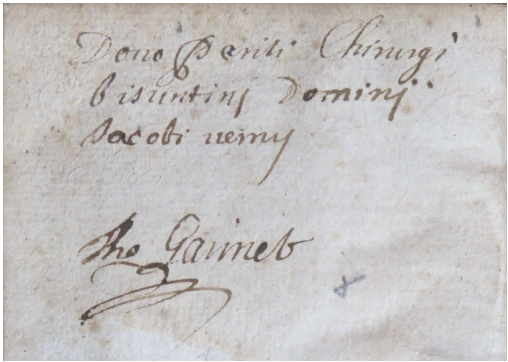 Dono Periti Chirurgi
bisuntinj Dominj
Jacobi vernij
Tho Gaimet